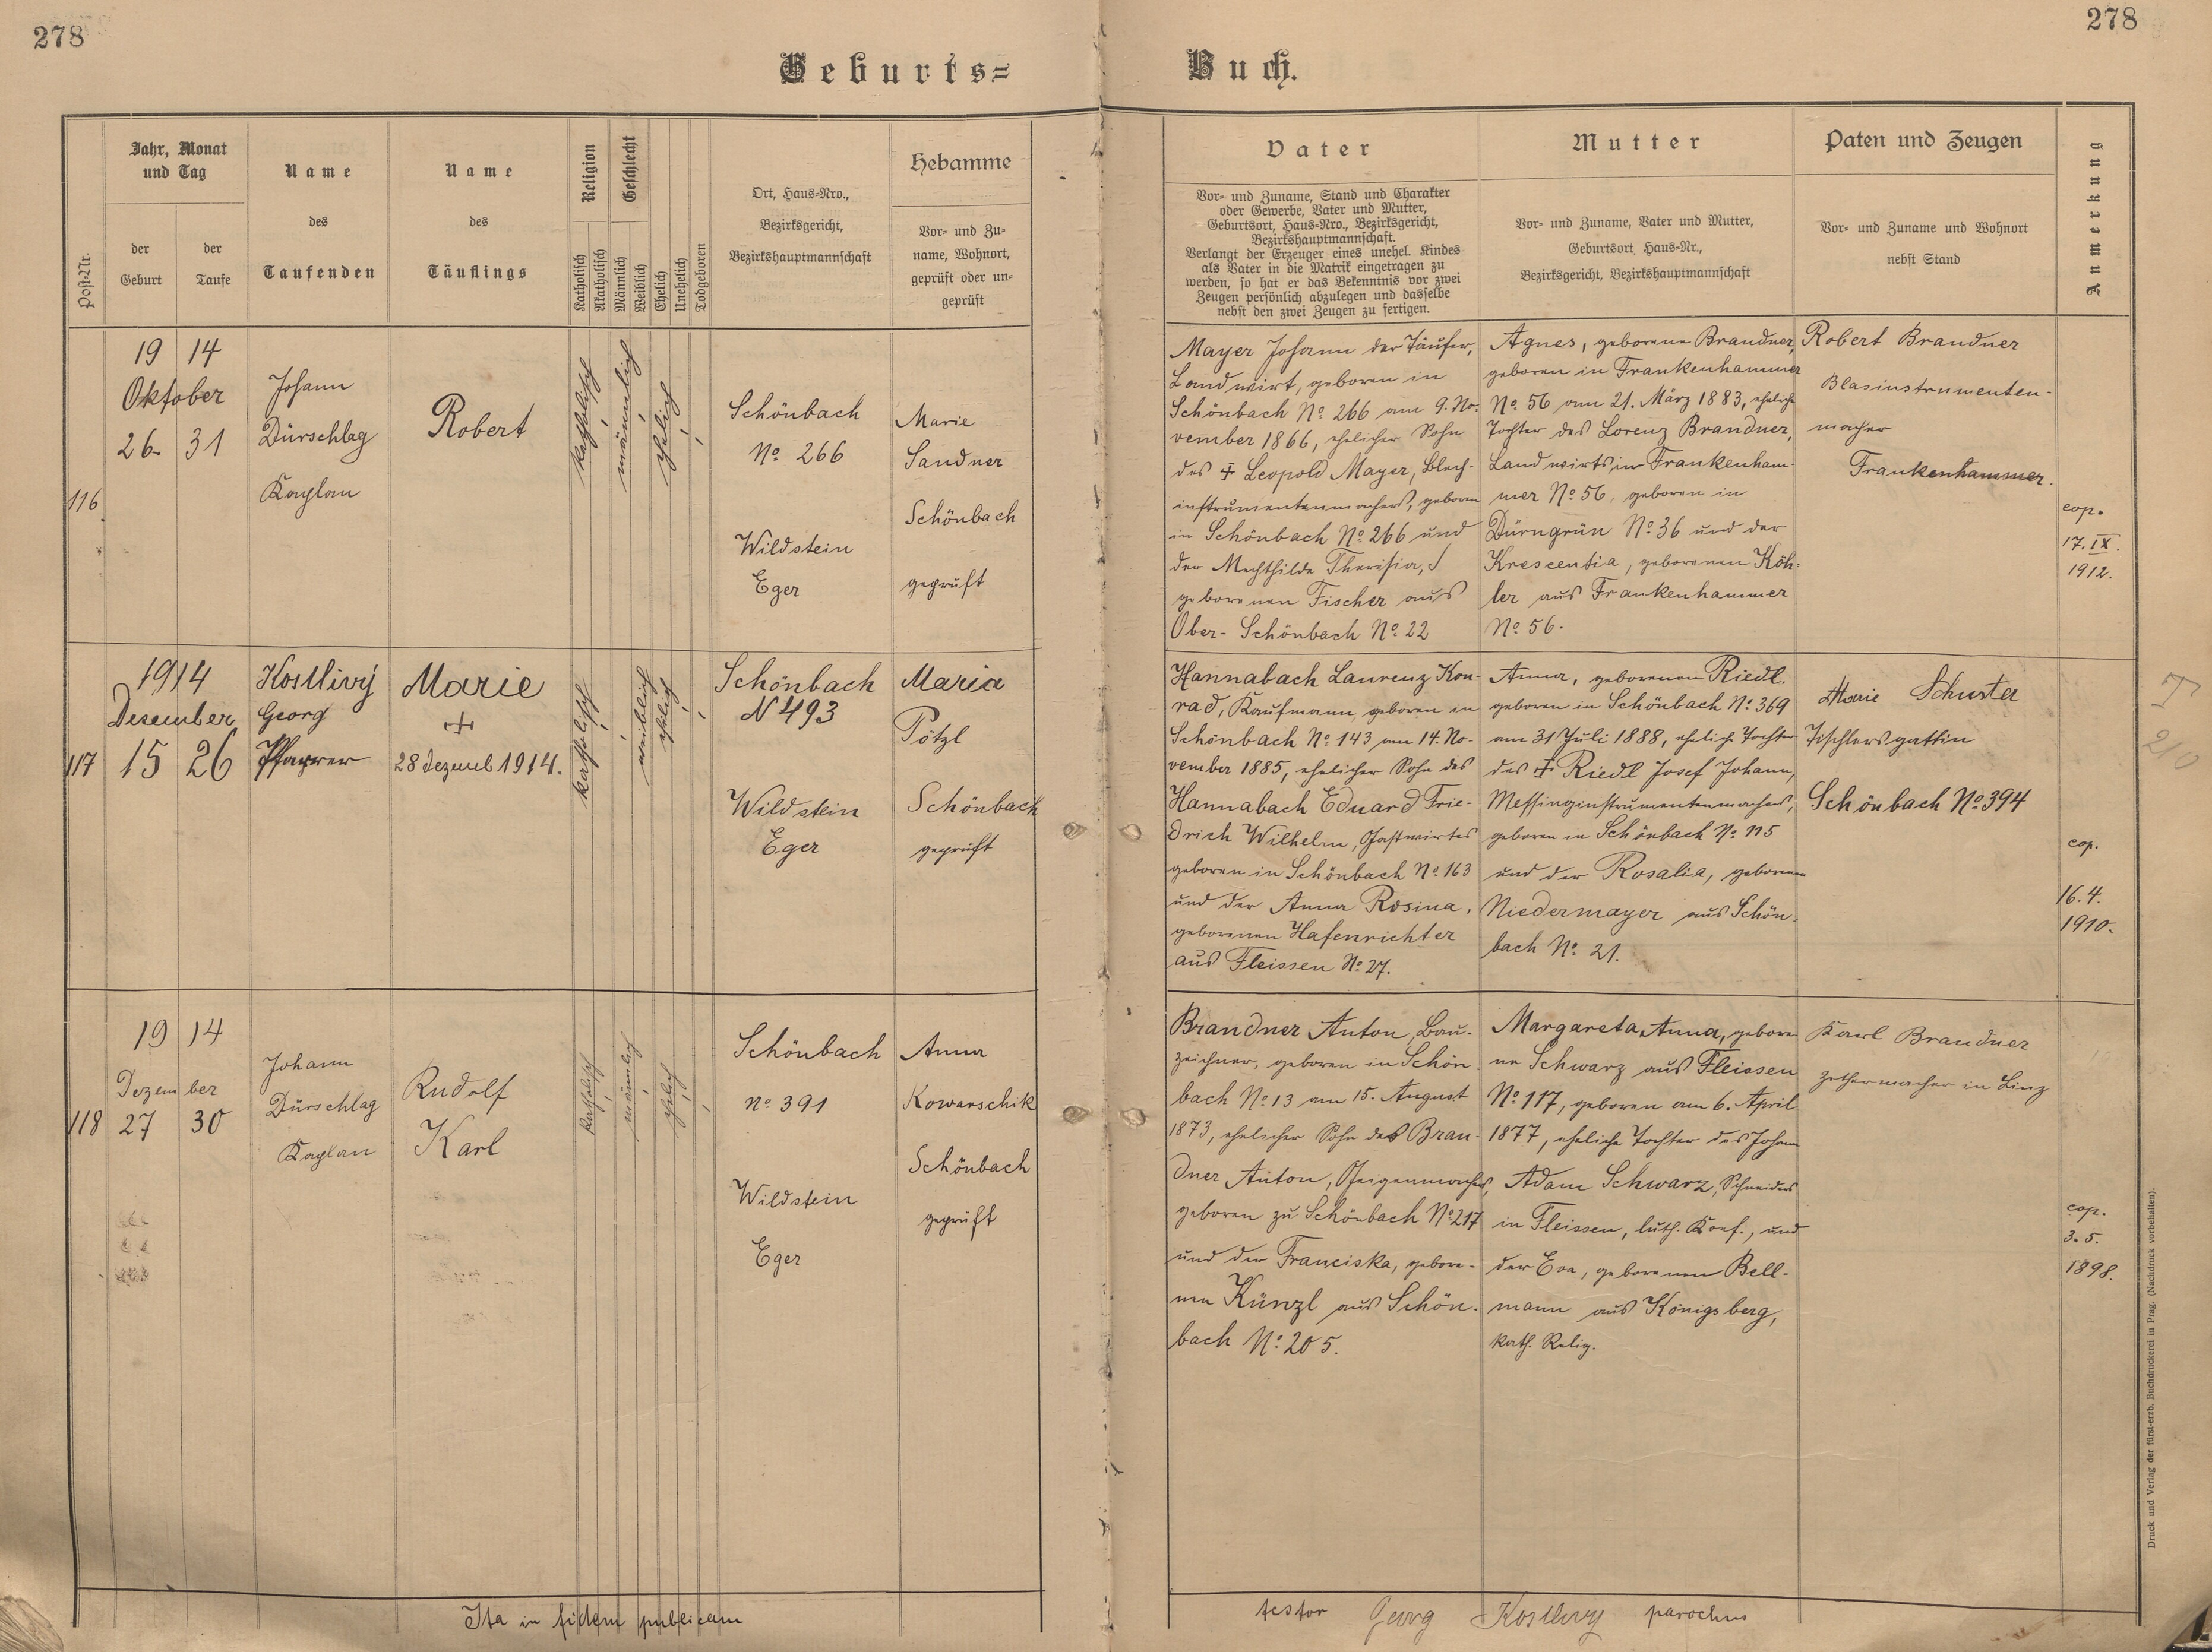 278
278
Geburts=
Buch.
Post-Nr.
Jahr, Monat
und Tag
der
Geburt
der
Taufe
Name
des
Taufenden
Name
des
Täuflings
Religion
Katholisch
Akatholisch
Geschlecht
Männlich
Weiblich
Ehelich
Unehelich
Todgeboren
Ort, Haus-Nro.,
Bezirksgericht,
Bezirkshauptmannschaft
Hebamme
Vor- und Zu-
name, Wohnort,
geprüft oder un-
geprüft
Vater
Vor- und Zuname, Stand und Charakter
oder Gewerbe, Vater und Mutter,
Geburtsort, Haus-Nro., Bezirksgericht,
Bezirkshauptmannschaft.
Verlangt der Erzeuger eines unehel. Kindes
als Vater in die Matrik eingetragen zu
werden, so hat er das Bekenntnis vor zwei
Zeugen persönlich abzulegen und dasselbe
nebst den zwei Zeugen zu fertigen.
Mutter
Vor- und Zuname, Vater und Mutter,
Geburtsort, Haus-Nr.,
Bezirksgericht, Bezirkshauptmannschaft
Paten und Zeugen
Vor- und Zuname und Wohnort
nebst Stand
Anmerkung
116.
19 14
Oktober
26. 31
Johann
Dürschlag
Kaplan
Robert
katholisch
männlich
ehelich
Schönbach
No. 266
Wildstein
Eger
Marie
Sandner
Schönbach
geprüft
Mayer Johann der Täufer,
Landwirt, geboren in
Schönbach No. 266 am 9. No-
vember 1866, ehelicher Sohn
des ‡ Leopold Mayer, Blech-
instrumentenmachers, geboren
in Schönbach No. 266 und
der Mechthilde Theresia,
geborenen Fischer aus
Ober-Schönbach No. 22
Agnes, geborene Brandner,
geboren in Frankenhammer
No. 56 am 21. März 1883, eheliche
Tochter des Lorenz Brandner,
Landwirts in Frankenham-
mer No. 56, geboren in
Dürngrün No. 36 und der
Krescentia, geborenen Köh-
ler aus Frankenhammer
No. 56.
Robert Brandner
Blasinstrumenten-
macher
Frankenhammer.
cop.
17. IX.
1912.
117
1914
Dezember
15 26
Kostlivý
Georg
Pfarrer
Marie
+
28 Dezemb 1914.
katholisch
weiblich
ehelich
Schönbach
N 493
Wildstein
Eger
Maria
Pötzl
Schönbach
geprüft
Hannabach Laurenz Kon-
rad, Kaufmann, geboren in
Schönbach No. 143 am 14. No-
vember 1885, ehelicher Sohn des
Hannabach Eduard Frie-
drich Wilhelm, Gastwirtes
geboren in Schönbach No. 163
und der Anna Rosina,
geborenen Hafenrichter
aus Fleissen No. 27.
Anna, geborenen Riedl.
geboren in Schönbach No. 369
am 31 Juli 1888, eheliche Tochter
des ‡ Riedl Josef Johann,
Messinginstrumentenmachers,
geboren in Schönbach No. 115
und der Rosalia, geborenen
Niedermayer aus Schön-
bach No. 21.
Marie Schuster
Tischlersgattin
Schönbach No. 394
cop.
16. 4.
1910.
118
19 14
Dezember
27 30
Johann
Dürschlag
Kaplan
Rudolf
Karl
katholisch
männlich
ehelich
Schönbach
No. 391
Wildstein
Eger
Anna
Kowarschik
Schönbach
geprüft
Brandner Anton, Bau-
zeichner, geboren in Schön-
bach No. 13 am 15. August
1873, ehelicher Sohn des Bran-
dner Anton, Geigenmachers,
geboren zu Schönbach No. 217
und der Franciska, gebore-
nen Künzl aus Schön-
bach No. 205.
Margareta Anna, gebore-
ne Schwarz aus Fleissen
No. 117, geboren am 6. April
1877, eheliche Tochter des Johann
Adam Schwarz, Schneiders
in Fleissen, luth. Konf., und
der Eva, geborenen Bell-
mann aus Königsberg,
kath. Relig.
Karl Brandner
Zithermacher in Linz
cop.
3. 5.
1898.
Ita in fidem publicam
testor Georg Kostlivý parochus
Druck und Verlag der fürst-erzb. Buchdruckerei in Prag. (Nachdruck vorbehalten).